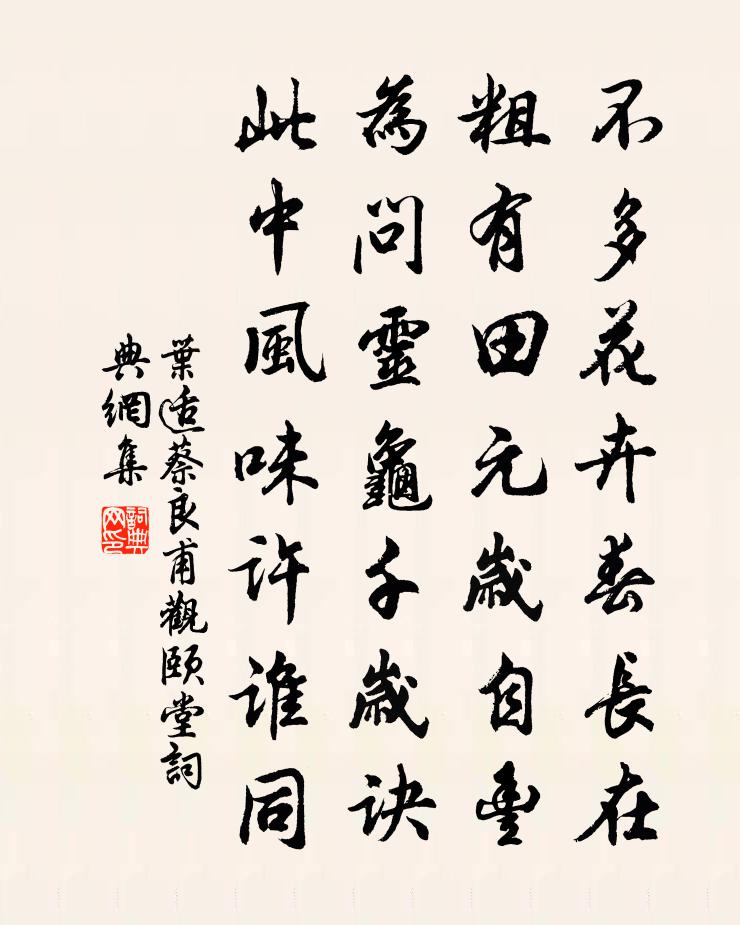 不多花卉春長在
粗有田元歲自豐
為問靈龜千歲訣
此中風味許誰同
葉适蔡良甫觀頤堂詞
典網集
詞典網印